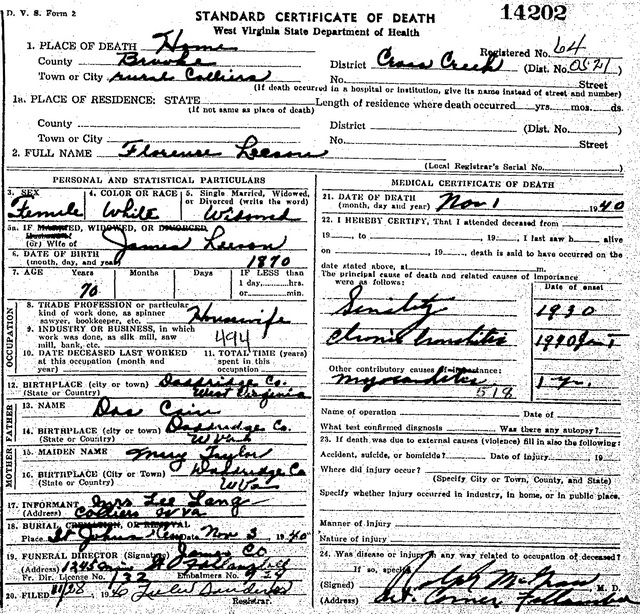 D. V. S. Form 2
STANDARD CERTIFICATE OF DEATH
14202
West Virginia State Department of Health
1. PLACE OF DEATH Home
Registered No. 64
County Brooke
District Cross Creek (Dist. No. 0521)
Town or City rural Colliers
No. Street
(If death occurred in a hospital or institution, give its name instead of street and number)
1a. PLACE OF RESIDENCE: STATE
Length of residence where death occurred yrs. mos. ds.
(If not same as place of death)
County
District (Dist. No. )
Town or City
No. Street
2. FULL NAME Florence Leeson
(Local Registrar's Serial No. )
PERSONAL AND STATISTICAL PARTICULARS
3. SEX Female
4. COLOR OR RACE White
5. Single Married, Widowed, or Divorced (write the word) Widowed
5a. IF MARRIED, WIDOWED, OR DIVORCED
(or) Wife of James Leeson
6. DATE OF BIRTH
(month, day, and year) 1870
7. AGE Years Months Days IF LESS than
1 day, hrs.
70 or min.
OCCUPATION
8. TRADE PROFESSION or particular
kind of work done, as spinner
sawyer, bookkeeper, etc. Housewife
9. INDUSTRY OR BUSINESS, in which
work was done, as silk mill, saw
mill, bank, etc. 494
10. DATE DECEASED LAST WORKED
at this occupation (month and
year)
11. TOTAL TIME (years)
spent in this
occupation
12. BIRTHPLACE (city or town) Doddridge Co.
(State or Country) West Virginia
FATHER
13. NAME Dos Cain
14. BIRTHPLACE (city or town) Doddridge Co.
(State or Country) W Va
MOTHER
15. MAIDEN NAME Mary Taylor
16. BIRTHPLACE (City or Town) Doddridge Co
(State or Country) W Va
17. INFORMANT Mrs Lee Lang
(Address) Colliers W Va
18. BURIAL CREMATION, OR REMOVAL
Place St Johns Cem Date Nov 3 1940
19. FUNERAL DIRECTOR (Signature) James Co
(Address) 1245 Main St Follansbee
Fr. Dir. License No. 132 Embalmers No. 934
20. FILED 11/28, 1940
Registrar.
MEDICAL CERTIFICATE OF DEATH
21. DATE OF DEATH
(month, day and year) Nov 1 1940
22. I HEREBY CERTIFY, That I attended deceased from
19 to 19 I last saw h alive
on 19 death is said to have occurred on the
date stated above, at m.
The principal cause of death and related causes of importance
were as follows: Date of onset
Senility 1930
Chronic bronchitis 1940 Jan 1
Other contributory causes of importance:
Myocarditis 518 1 yr.
Name of operation Date of
What test confirmed diagnosis Was there any autopsy?
23. If death was due to external causes (violence) fill in also the following:
Accident, suicide, or homicide? Date of injury 19
Where did injury occur?
(Specify City or Town, County, and State)
Specify whether injury occurred in industry, in home, or in public place.
Manner of Injury
Nature of injury
24. Was disease or injury in any way related to occupation of deceased?
If so, specify
(Signed) Ralph McGraw M. D.
(Address) Follansbee